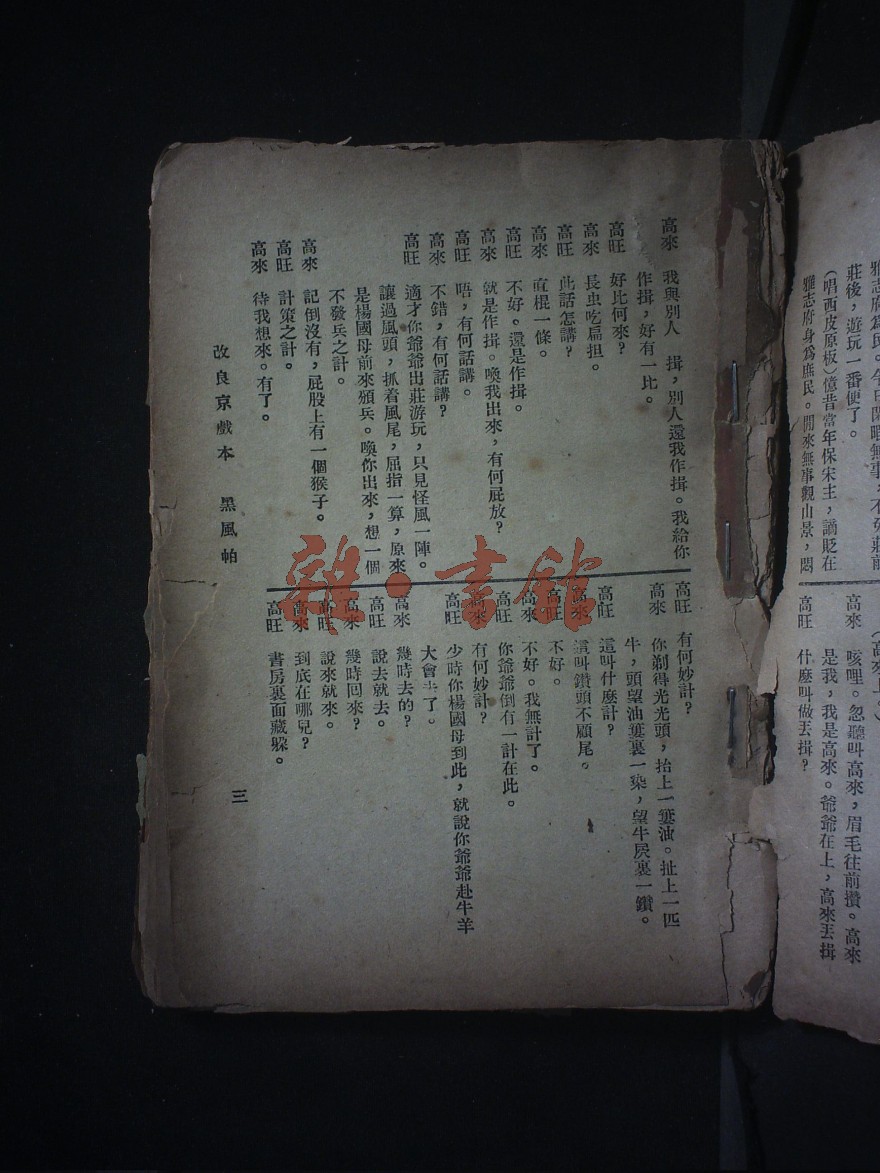 雅志府爲民。今日閑暇無事，不免莊前
莊後，遊玩一番便了。
（唱西皮原板）憶昔當年保宋主，謫貶在
雅志府身爲庶民。閒來無事觀山景，悶
（高來上。）
高來 咳哩。忽聽叫高來，眉毛往前攢。高來
是我，我是高來。爺爺在上，高來丟揖
高旺 什麼叫做丟揖？
高來 我與別人 揖，別人還我作揖。我給你
作揖，好有一比。
高旺 好比何來？
高來 長虫吃扁担。
高旺 此話怎講？
高來 直棍一條。
高旺 不好。還是作揖。
高來 就是作揖。喚我出來，有何屁放？
高旺 唔，有何話講。
高來 不錯，有何話講？
高旺 適才你爺爺出莊游玩，只見怪風一陣。
讓過風頭，抓着風尾，屈指一算，原來
是楊國母前來頒兵。喚你出來，想一個
不發兵之計。
高來 記倒沒有，屁股上有一個猴子。
高旺 計策之計。
高來 待我想來。有了。
高旺 有何妙計？
高來 你剃得光光頭，抬上一簍油。扯上一匹
牛，頭望油簍裏一染，望牛屄裏一鑽。
高旺 這叫什麼計？
高來 這叫鑽頭不顧尾。
高旺 不好。
高來 不好。我無計了。
高旺 你爺爺倒有一計在此。
高來 有何妙計？
高旺 少時你楊國母到此，就說你爺爺赴牛羊
大會去了。
高來 幾時去的？
高旺 說去就去。
高來 幾時回來？
高旺 說來就來。
高來 到底在哪兒？
高旺 書房裏面藏躲。
改良京戲本 黑風帕
三
雜·書館